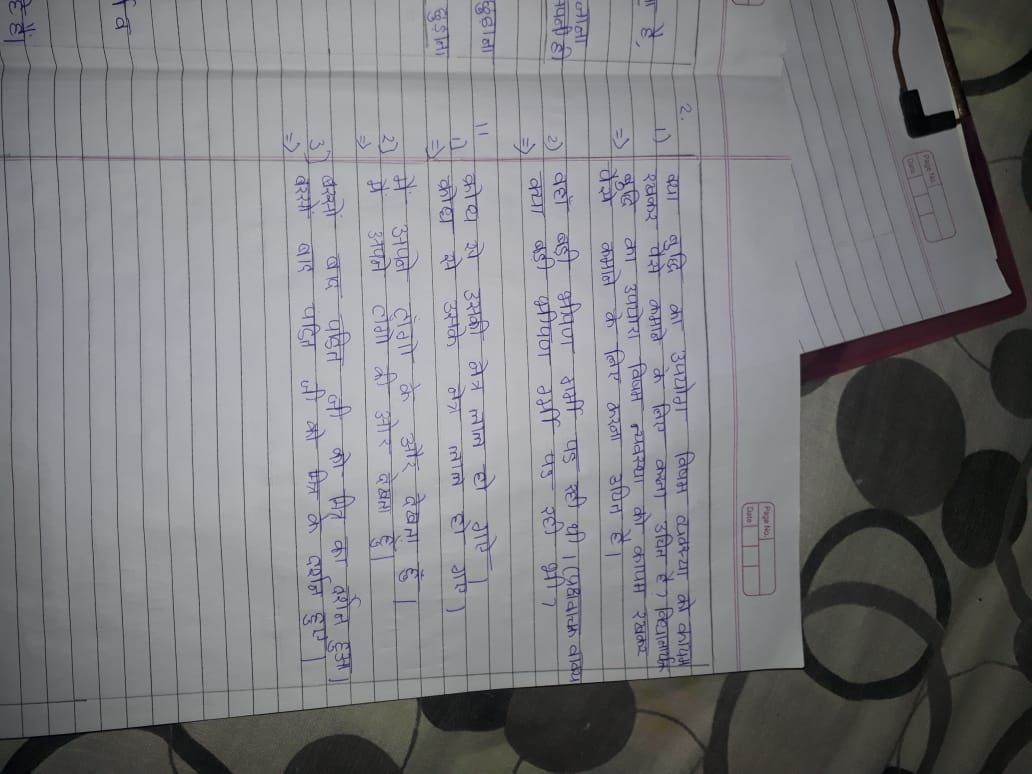 Page No.
Date
Page No.
Date
2.
1) क्या बुद्धि का उपयोग विषम व्यवस्था को कायम
रखकर पैसे कमाने के लिए करना उचित है ? विधानार्थक
⇒ बुद्धि का उपयोग विषम व्यवस्था को कायम रखकर
पैसे कमाने के लिए करना उचित है।
2) वहाँ बड़ी भीषण गर्मी पड़ रही थी। (प्रश्नवाचक वाक्य
⇒ क्या बड़ी भीषण गर्मी पड़ रही थी ?
11
1) क्रोध से उसकी नेत्र लाल हो गए।
⇒ क्रोध से उसके नेत्र लाल हो गए।
2) मैं अपने टाँगो के और देखना हूँ।
⇒ मैं अपने टाँगों की ओर देखता हूँ।
3) बरसो बाद पंडित जी को मित्र का दर्शन हुआ।
⇒ बरसों बाद पंडित जी को मित्र के दर्शन हुए।